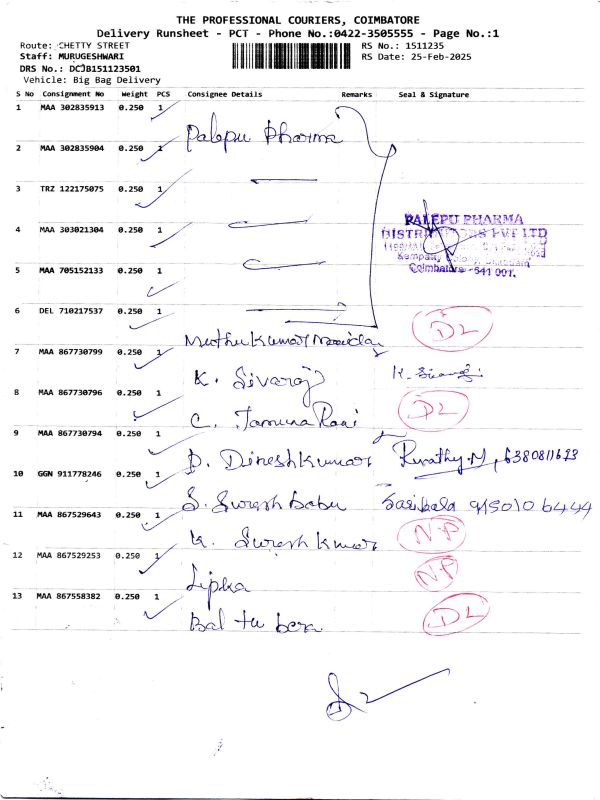 THE PROFESSIONAL COURIERS, COIMBATORE
Delivery Runsheet - PCT - Phone No.:0422-3505555 - Page No.:1
Route: CHETTY STREET RS No.: 1511235
Staff: MURUGESHWARI RS Date: 25-Feb-2025
DRS No.: DCJB151123501
Vehicle: Big Bag Delivery
S No Consignment No Weight PCS Consignee Details Remarks Seal & Signature
1 MAA 302835913 0.250 1
Palepu Pharma
2 MAA 302835904 0.250 1
3 TRZ 122175075 0.250 1
4 MAA 303021304 0.250 1
PALEPU PHARMA
PVT LTD
5 MAA 705152133 0.250 1
Coimbatore - 641 001.
6 DEL 710217537 0.250 1
DL
7 MAA 867730799 0.250 1
K. Sivaraj
8 MAA 867730796 0.250 1
C. Jamuna Rani DL
9 MAA 867730794 0.250 1
D. Dineshkumar
10 GGN 911778246 0.250 1
S. Suresh Babu Sasibala
11 MAA 867529643 0.250 1
K. Suresh Kumar NP
12 MAA 867529253 0.250 1
Lipka NP
13 MAA 867558382 0.250 1
Bal tu bera DL